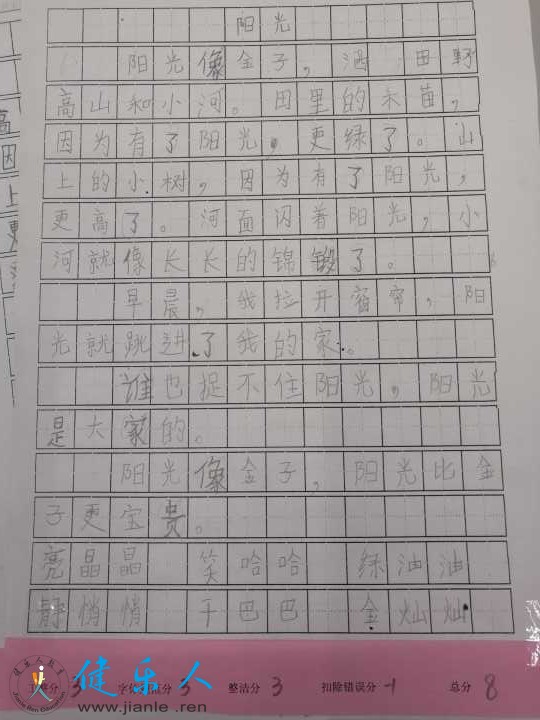 阳光
阳光像金子，洒 田野
高山和小河。田里的禾苗，
因为有了阳光，更绿了。山
上的小树，因为有了阳光，
更高了。河面闪着阳光，小
河就像长长的锦缎了。
早晨，我拉开窗帘，阳
光就跳进了我的家。
谁也捉不住阳光，阳光
是大家的。
阳光像金子，阳光比金
子更宝贵。
亮晶晶 笑哈哈 绿油油
静悄悄 干巴巴 金灿灿
3 3 整洁分 3 扣除错误分 -1 总分 8
健乐人
www.jianle.ren